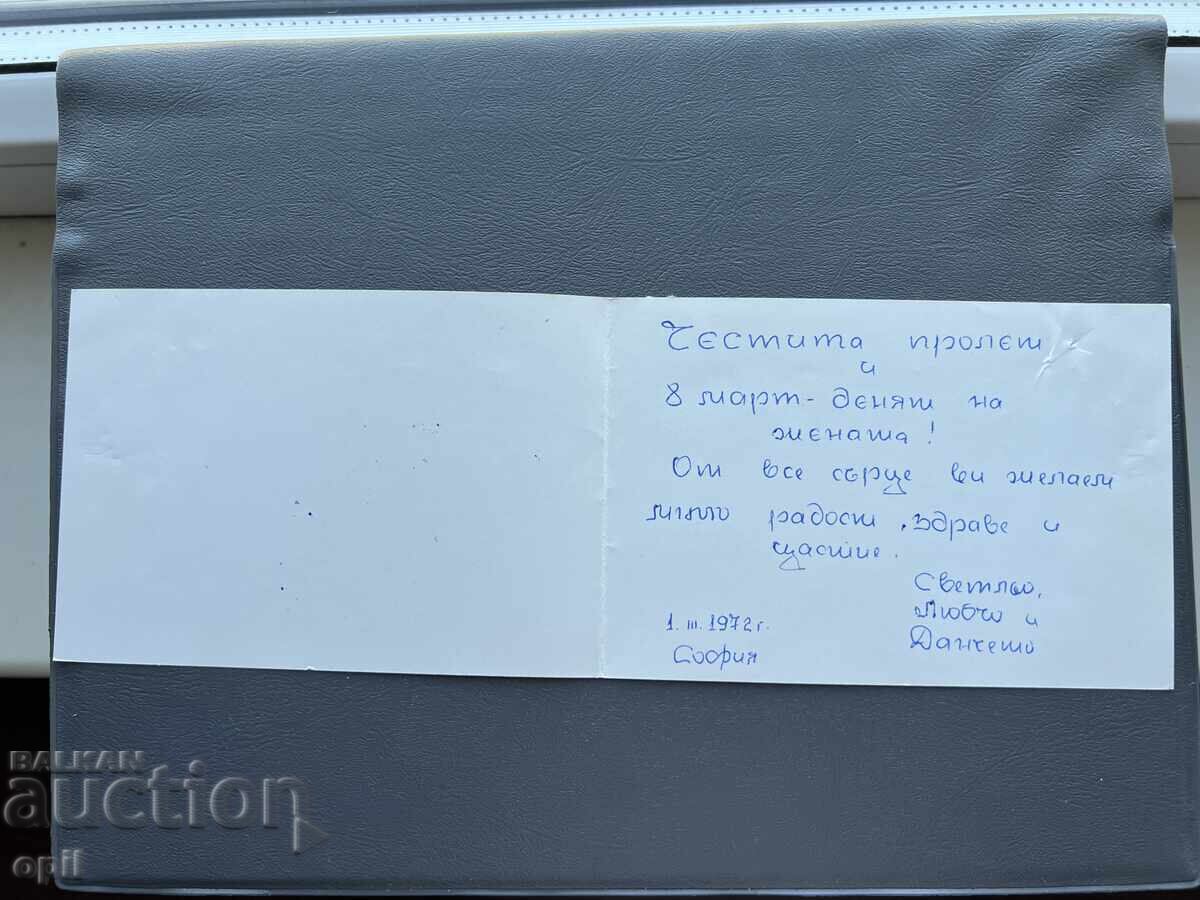 Честита пролет
и
8 март - денят на
жената!
От все сърце ви желаем
много радост, здраве и
щастие.
Светльо,
Любчо и
Данчето
1. III. 1972 г.
София
BALKAN
auction
opil